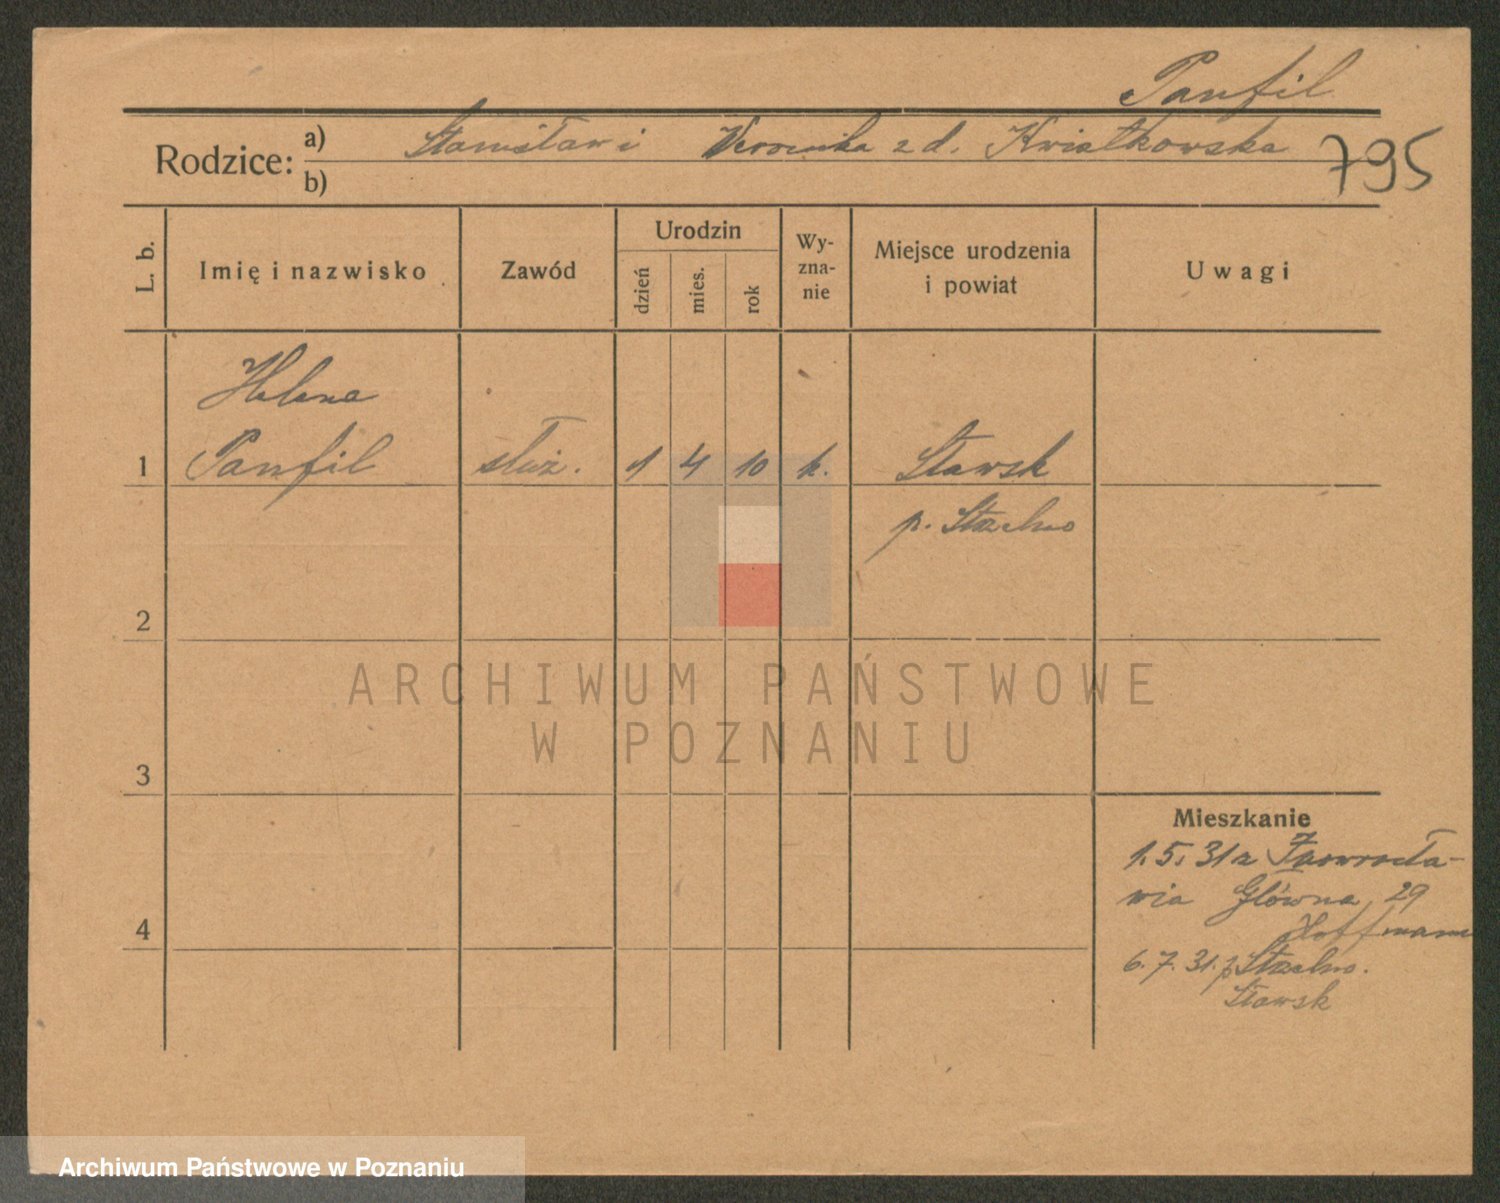 Panfil
Rodzice: a) Stanisław i Weronika z d. Kwiatkowska
b)
795
L. b.
Imię i nazwisko
Zawód
Urodzin
dzień
mies.
rok
Wy-
zna-
nie
Miejsce urodzenia
i powiat
Uwagi
Helena
1 Panfil służ. 1 4 10 k. Stawsk
p. Strzelno
2
3
4
Mieszkanie
1.5.31 z Inowrocła-
wia Główna 29
Hoffmann
6.7.31. p Strzelno.
Stawsk
ARCHIWUM PAŃSTWOWE
W POZNANIU
Archiwum Państwowe w Poznaniu